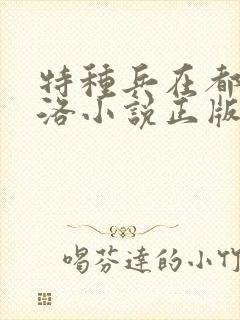 特種兵在都
洛小說正版
喝芬達的小竹